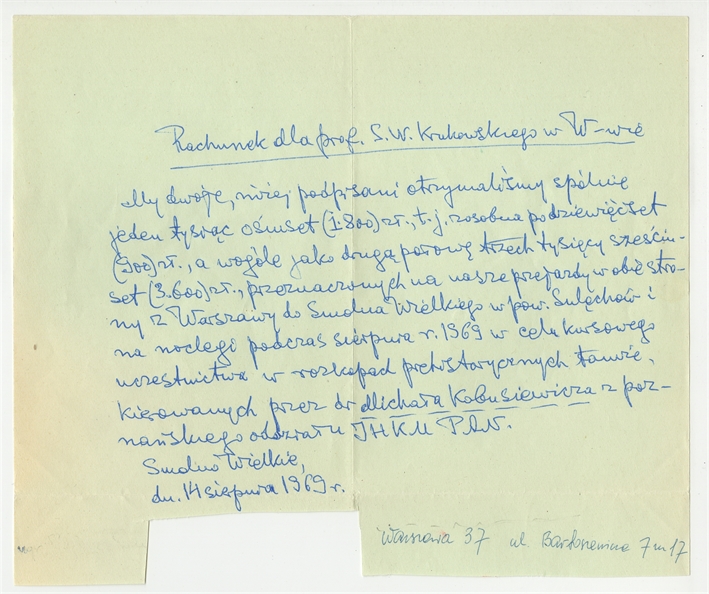 Rachunek dla prof. S. W. Krukowskiego w W-wie
My dwoje, niżej podpisani otrzymaliśmy spólnie
jeden tysiąc ośmset (1.800) zł., t. j. zosobna po dziewięćset
(900) zł., a wogóle jako drugą połowę trzech tysięcy sześciu-
set (3.600) zł., przeznaczonych na nasze przejazdy w obie stro-
ny z Warszawy do Smolna Wielkiego w pow. Sulechów i
na noclegi podczas sierpnia r. 1969 w celu kursowego
uczestnictwa w rozkopach prehistorycznych tamże,
kierowanych przez dr Michała Kobusiewicza z poz-
nańskiego oddziału IHKM PAN.
Smolno Wielkie,
dn. 14 sierpnia 1969 r.
Warszawa 37 ul. 7 m 17